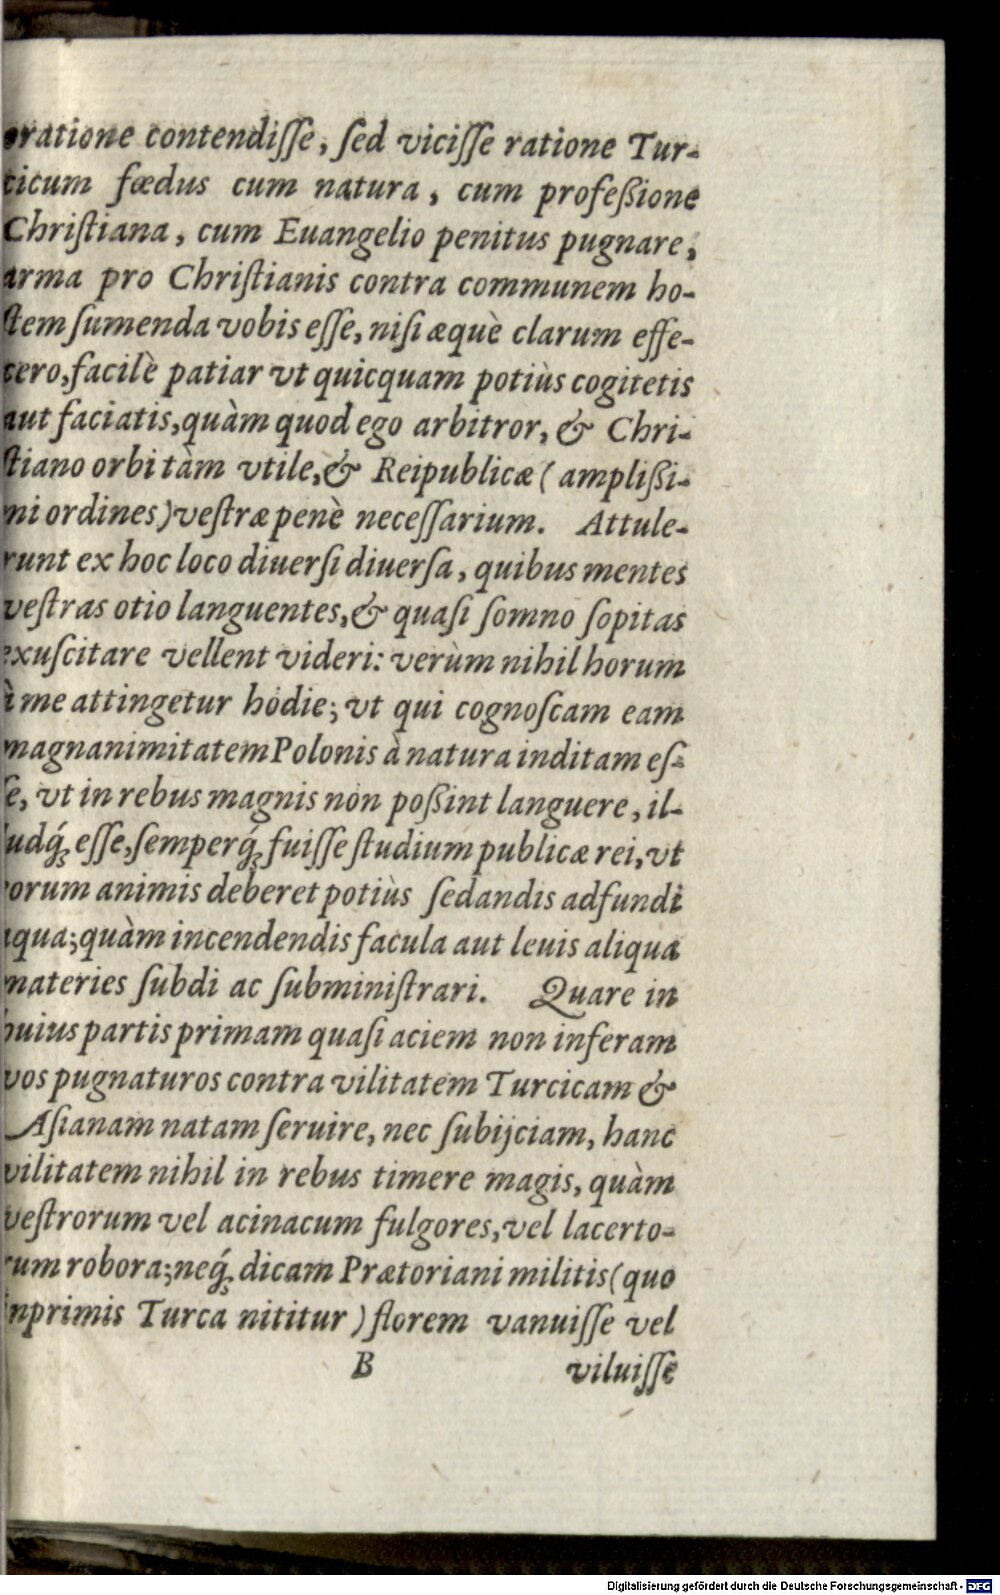 oratione contendiſſe, ſed viciſſe ratione Tur-
cicum fœdus cum natura, cum profeßione
Chriſtiana, cum Euangelio penitus pugnare,
arma pro Chriſtianis contra communem ho-
ſtem ſumenda vobis eſſe, niſi æquè clarum effe-
cero, facilè patiar vt quicquam potiùs cogitetis
aut faciatis, quàm quod ego arbitror, & Chri-
ſtiano orbi tàm vtile, & Reipublicæ (amplißi-
mi ordines) veſtræ penè neceſſarium. Attule-
runt ex hoc loco diuerſi diuerſa, quibus mentes
veſtras otio languentes, & quaſi ſomno ſopitas
exuſcitare vellent videri: verùm nihil horum
à me attingetur hodie; vt qui cognoſcam eam
magnanimitatem Polonis à natura inditam eſ-
ſe, vt in rebus magnis non poßint languere, il-
ludq́; eſſe, ſemperq́; fuiſſe ſtudium publicæ rei, vt
eorum animis deberet potiùs ſedandis adfundi
aqua; quàm incendendis facula aut leuis aliqua
materies ſubdi ac ſubminiſtrari. Quare in
huius partis primam quaſi aciem non inferam
vos pugnaturos contra vilitatem Turcicam &
Aſianam natam ſeruire, nec ſubijciam, hanc
vilitatem nihil in rebus timere magis, quàm
veſtrorum vel acinacum fulgores, vel lacerto-
rum robora; neq́; dicam Prætoriani militis (quo
inprimis Turca nititur) florem vanuiſſe vel
B viluiſſe
Digitalisierung gefördert durch die Deutsche Forschungsgemeinschaft - DFG